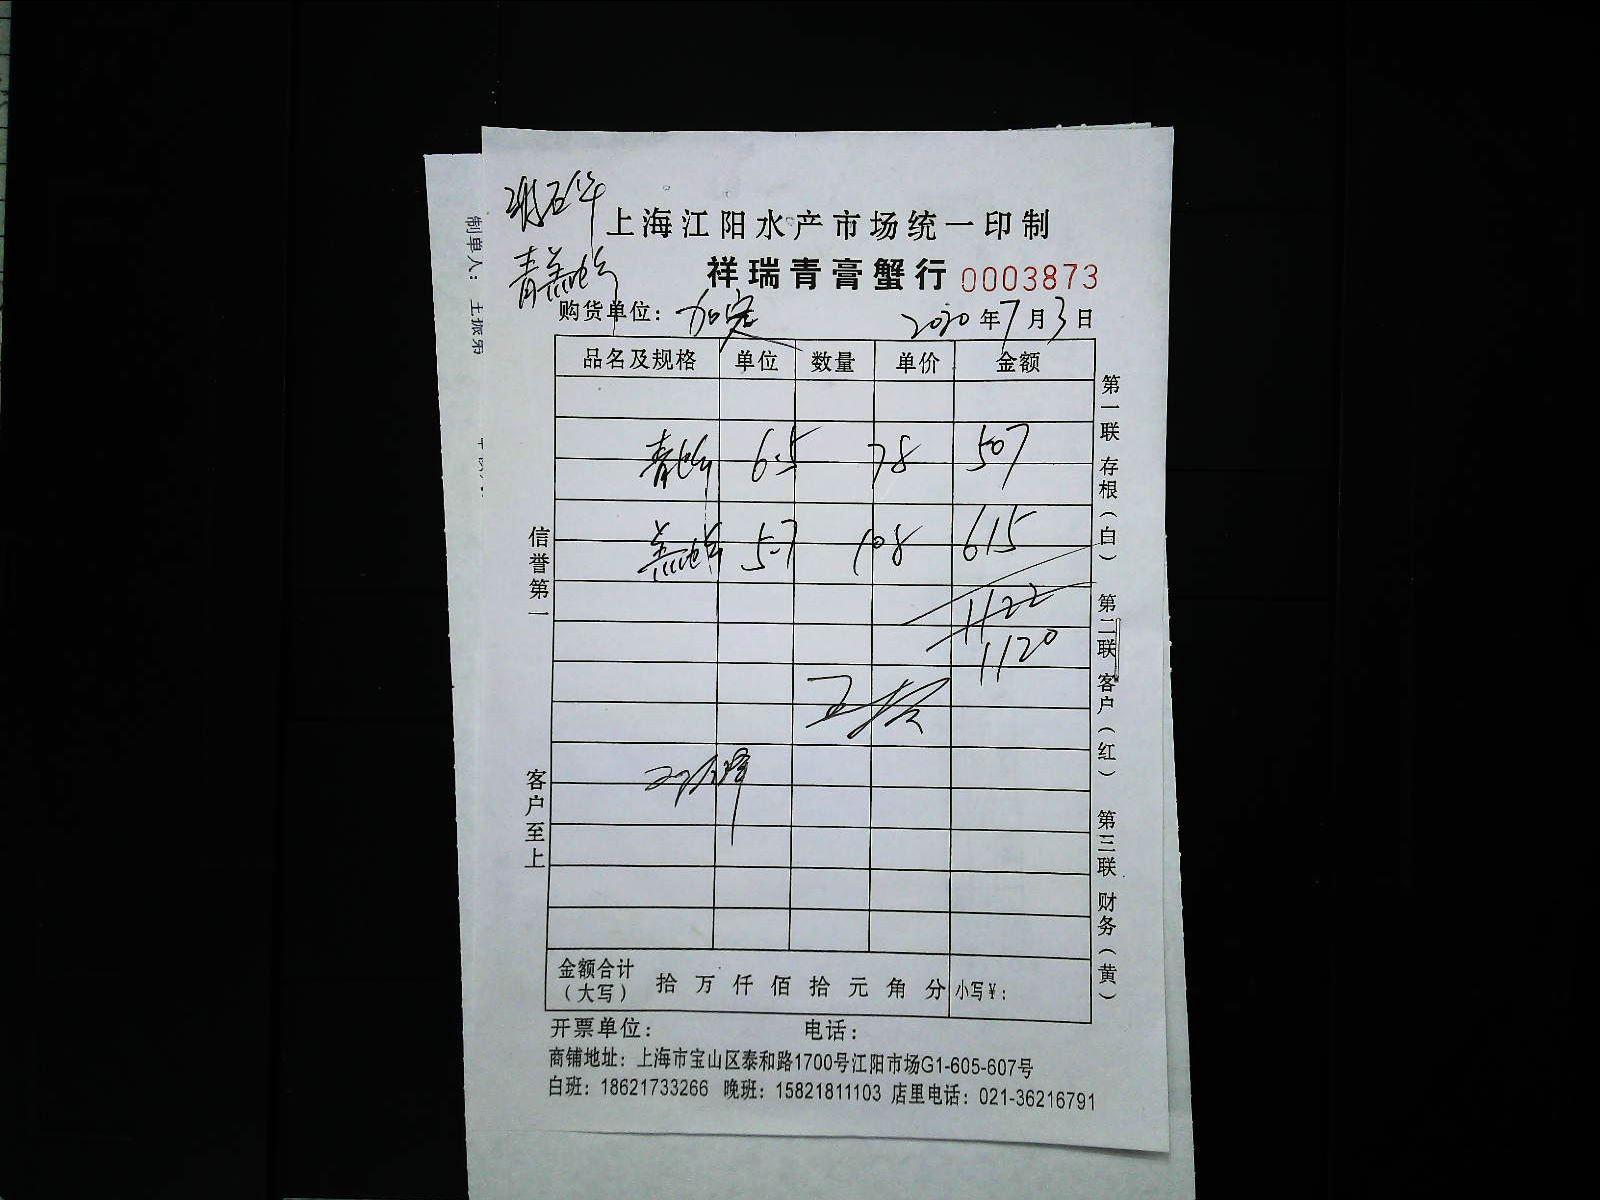 上海江阳水产市场统一印制
祥瑞青膏蟹行 0003873
购货单位: 加定 2020年7月3日
品名及规格 单位 数量 单价 金额
青蛤 6.5 78 507
5.7 108 615
1122
1120
第一联 存根(白) 第二联 客户(红) 第三联 财务(黄)
信誉第一
客户至上
金额合计(大写) 拾 万 仟 佰 拾 元 角 分 小写¥:
开票单位: 电话:
商铺地址: 上海市宝山区泰和路1700号江阳市场G1-605-607号
白班: 18621733266 晚班: 15821811103 店里电话: 021-36216791
制单人: